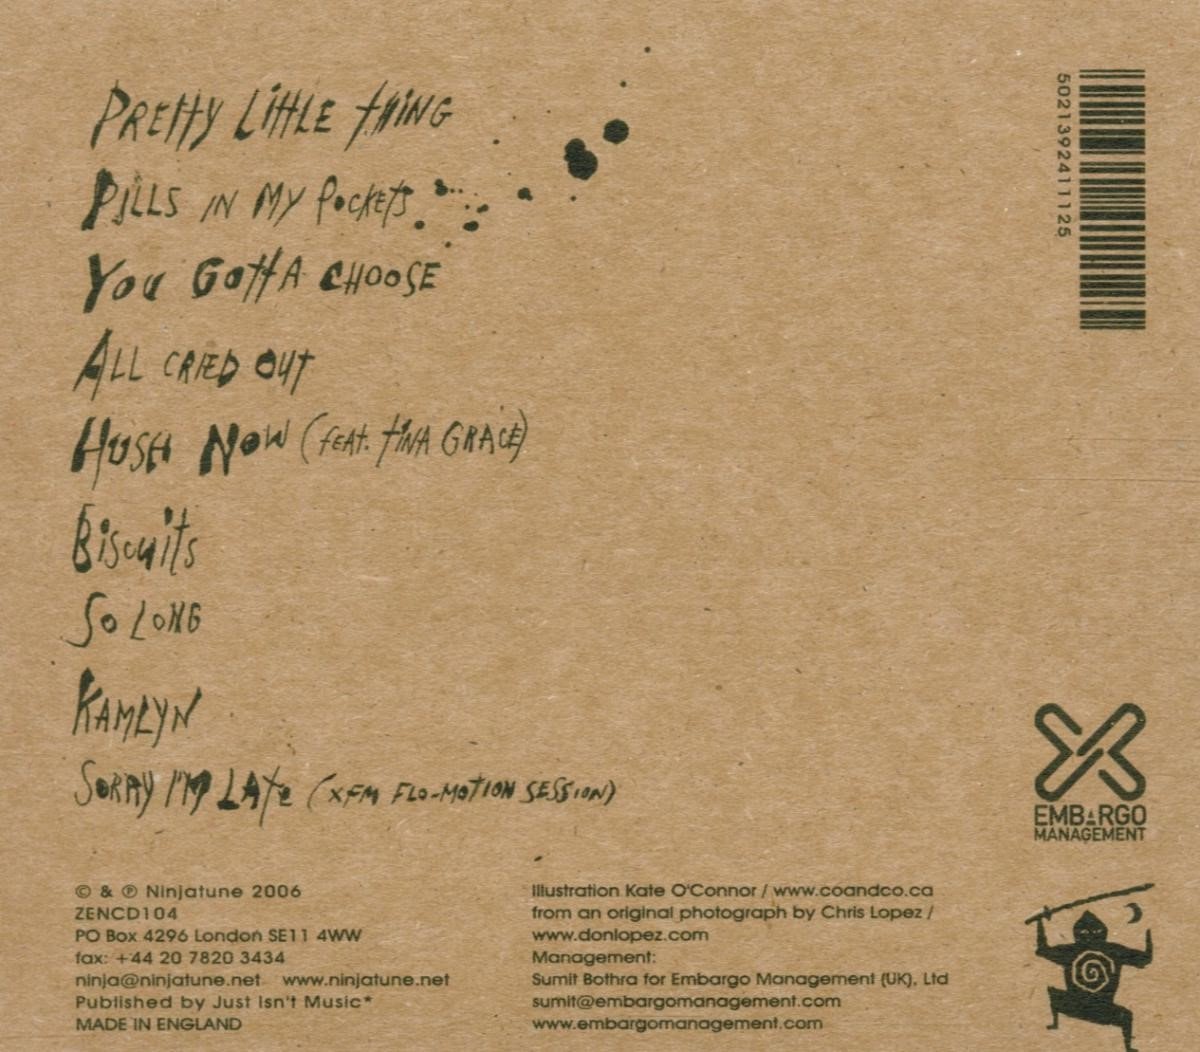 PRETTY LITTLE THING
PILLS IN MY POCKETS
YOU GOTTA CHOOSE
ALL CRIED OUT
HUSH NOW (FEAT. TINA GRACE)
Biscuits
SO LONG
KAMLYN
SORRY I'M LATE (XFM FLO-MOTION SESSION)
5021392411125
EMBARGO
MANAGEMENT
© & ℗ Ninjatune 2006
ZENCD104
PO Box 4296 London SE11 4WW
fax: +44 20 7820 3434
ninja@ninjatune.net www.ninjatune.net
Published by Just Isn't Music*
MADE IN ENGLAND
Illustration Kate O'Connor / www.coandco.ca
from an original photograph by Chris Lopez /
www.donlopez.com
Management:
Sumit Bothra for Embargo Management (UK), Ltd
sumit@embargomanagement.com
www.embargomanagement.com